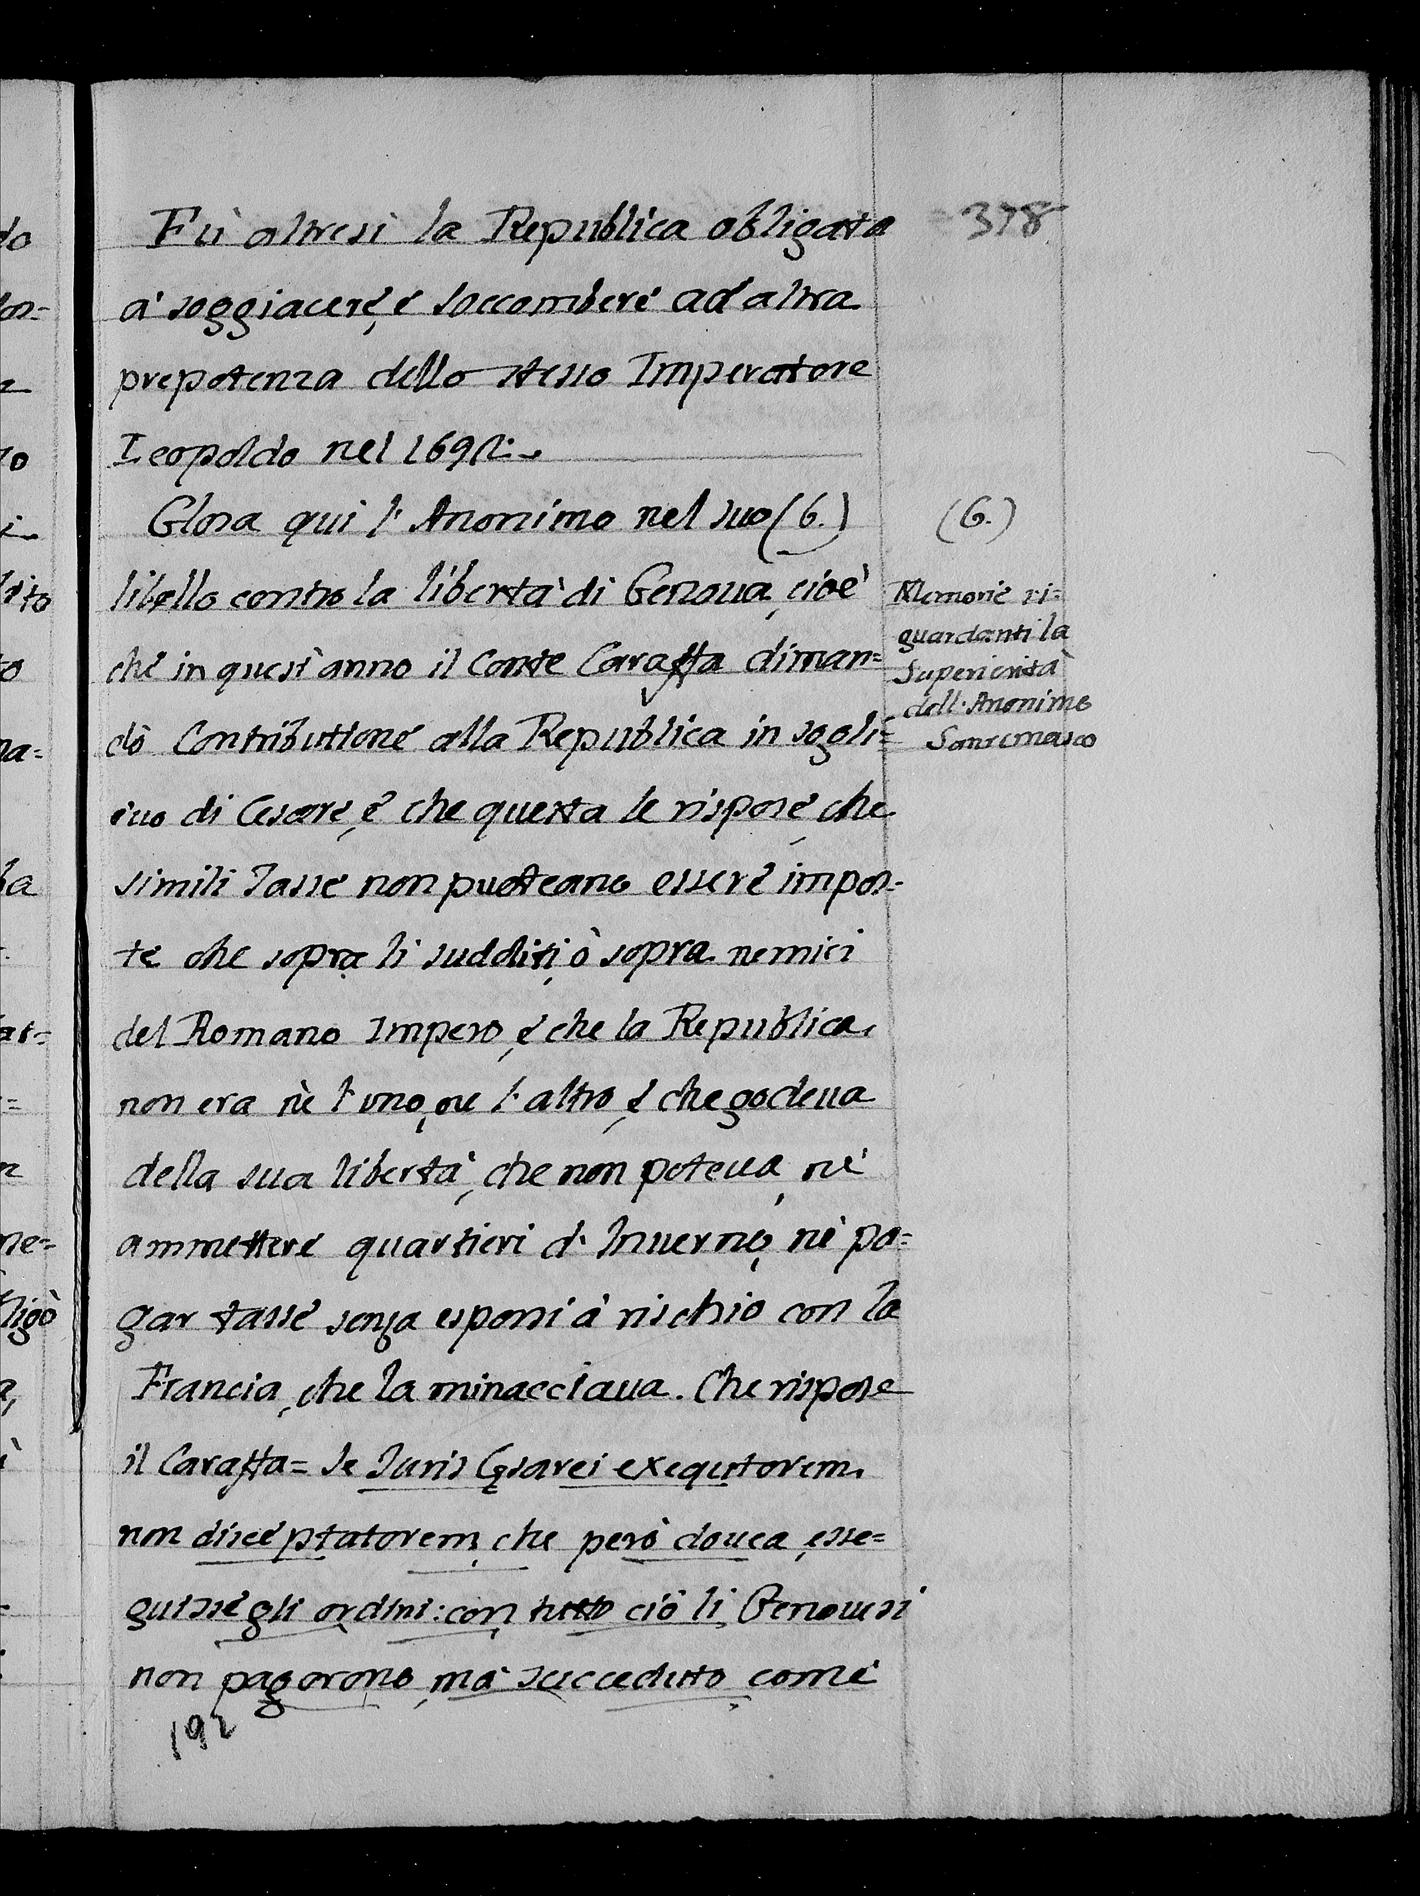 378
Fù altresì la Republica obligata
à soggiacere, e soccombere ad altra
prepotenza dello stesso Imperatore
Leopoldo nel
Glosa qui l'Anonimo nel suo (6.)
libello contro la libertà di Genova, cioè
che in quest'anno il Conte Caraffa diman=
dò Contributione alla Republica in
di Cesare, e che questa le rispose, che
simili Tasse non puoteano essere impos-
te che sopra li sudditi, ò sopra nemici
del Romano Impero, e che la Republica
non era nè l'uno, ne l'altro, e che godeua
della sua libertà, che non poteua, nè
ammettere quartieri d'Inuerno, nè pa=
gar tasse senza esporsi à rischio con la
Francia, che la minacciaua. Che rispose
il Caraffa = se Iuris Cesarei exequtorem
non disceptatorem, che però doueua esse=
guisse gli ordini: con tutto ciò li Genouesi
non pagorono, mà succeduto, come
192
(6.)
Memorie ri=
guardanti la
Superiorità
dell'Anonimo
Sanremasco
do
ligò